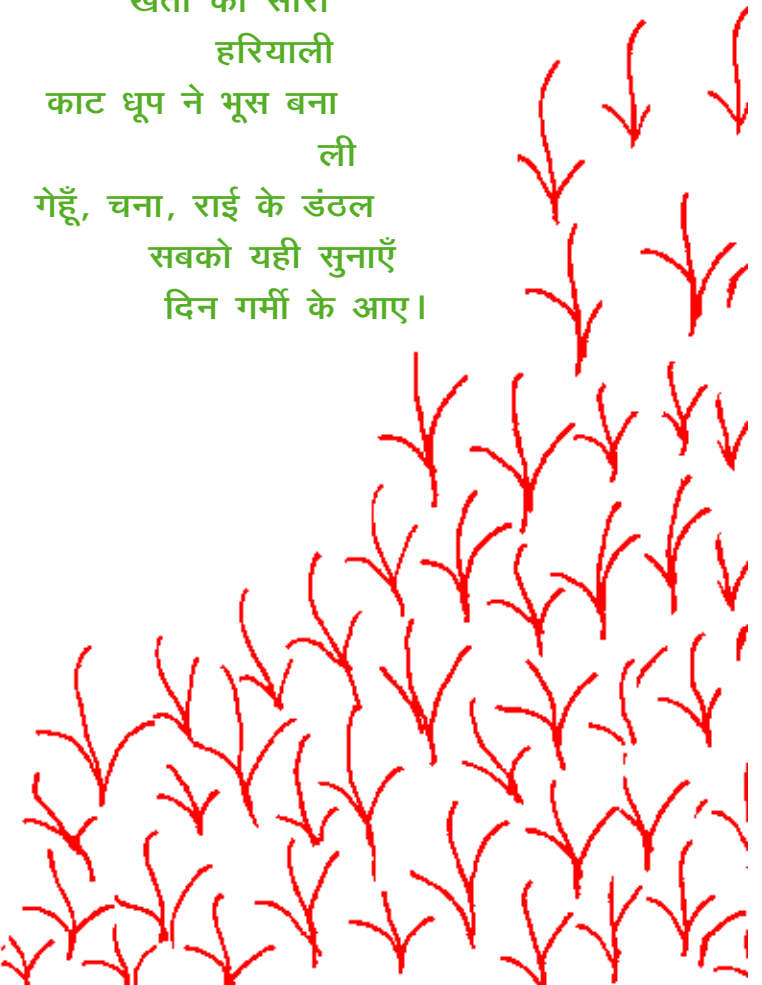 खेतों की सारी
हरियाली
काट धूप ने भूस बना
ली
गेहूँ, चना, राई के डंठल
सबको यही सुनाएँ
दिन गर्मी के आए।